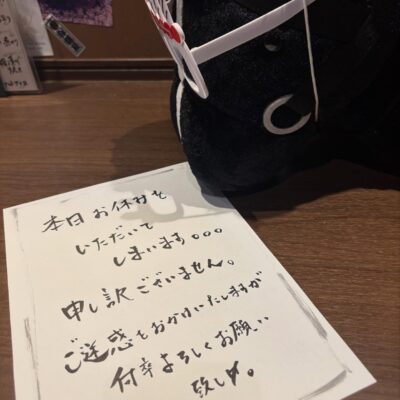 本日お休みを
いただいて
しまいます。。。
申し訳ございません。
ご迷惑をおかけいたしますが
何卒よろしくお願い
致します。